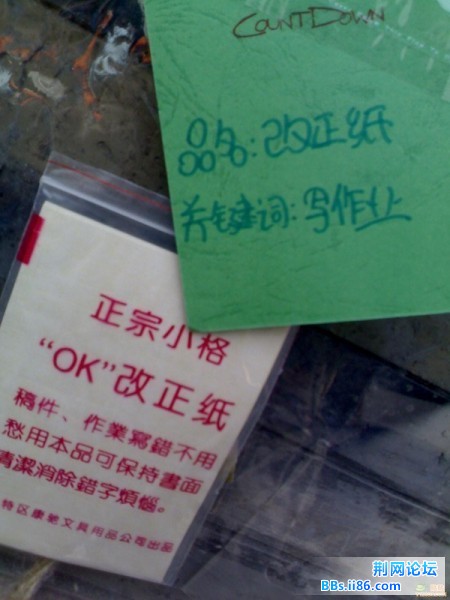 COUNTDOWN
品名:改正纸
关键词:写作业
正宗小格
“OK”改正纸
稿件、作業寫錯不用
愁用本品可保持書面
清潔消除錯字煩惱。
特区康驰文具用品公司出品
荆网论坛
BBs.ii86.com